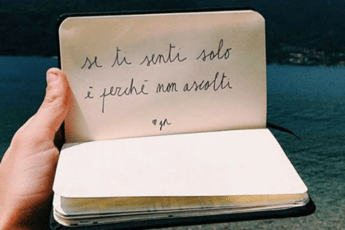 se ti senti solo
è perché non ascolti